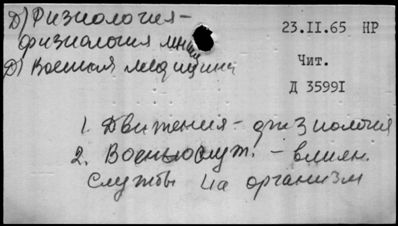 Д) Физиология -
физиология
Д) Военная медицина
23.II.65 НР
Чит.
Д 35991
1. Движения - физиология
2. Военнослуж. - влиян.
службы на организм